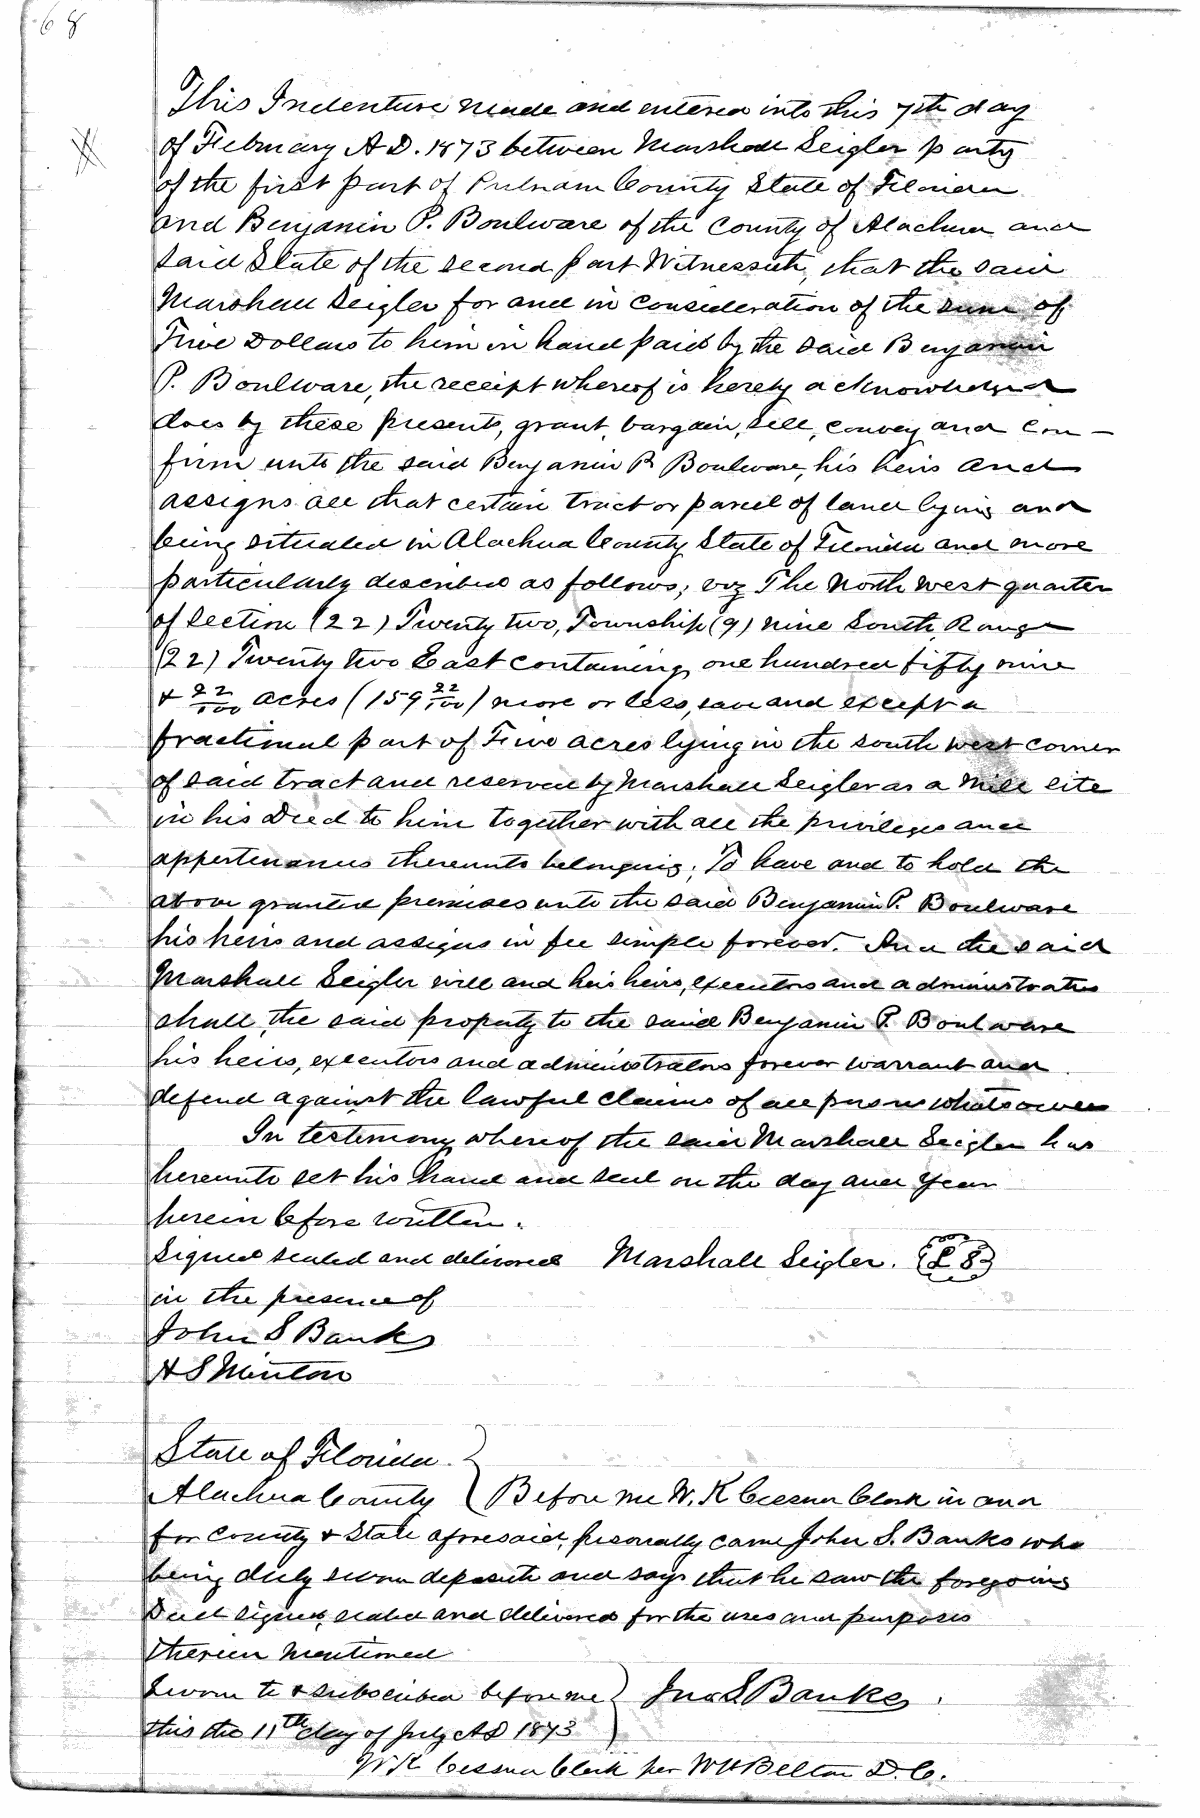 68
This Indenture made and entered into this 7th day
of February A.D. 1873 between Marshall Seigler party
of the first part of Putnam County State of Florida
and Benjamin P. Boulware of the County of Alachua and
said State of the second part Witnesseth, that the said
Marshall Seigler for and in consideration of the sum of
Five Dollars to him in hand paid by the said Benjamin
P. Boulware, the receipt whereof is hereby acknowledged
does by these presents, grant, bargain, sell, convey and con-
firm unto the said Benjamin P. Boulware, his heirs and
assigns all that certain tract or parcel of land lying and
being situated in Alachua County State of Florida and more
particularly described as follows; viz The North West quarter
of Section (22) Twenty two, Township (9) nine South, Range
(22) Twenty two East containing one hundred fifty nine
& 22/100 acres (159 22/100) more or less, save and except a
fractional part of Five acres lying in the south west corner
of said tract and reserved by Marshall Seigler as a Mill site
in his Deed to him together with all the privileges and
appertenances thereunto belonging; To have and to hold the
above granted premises unto the said Benjamin P. Boulware
his heirs and assigns in fee simple forever. And the said
Marshall Seigler will and his heirs, executors and administrators
shall, the said property to the said Benjamin P. Boulware
his heirs, executors and administrators forever warrant and
defend against the lawful claims of all persons whatsoever
In testimony whereof the said Marshall Seigler has
hereunto set his hand and seal on the day and year
herein before written.
Signed sealed and delivered Marshall Seigler. L S
in the presence of
John S Banks
H S Minton
State of Florida
Alachua County } Before me W. K Cessna Clerk in and
for County & State aforesaid, personally came John S. Banks who
being duly sworn deposeth and says that he saw the foregoing
Deed signed, sealed and delivered for the uses and purposes
therein mentioned
Sworn to & subscribed before me } Jno S Banks.
this the 11th day of July AD 1873
W K Cessna Clerk per W H Belton D.C.